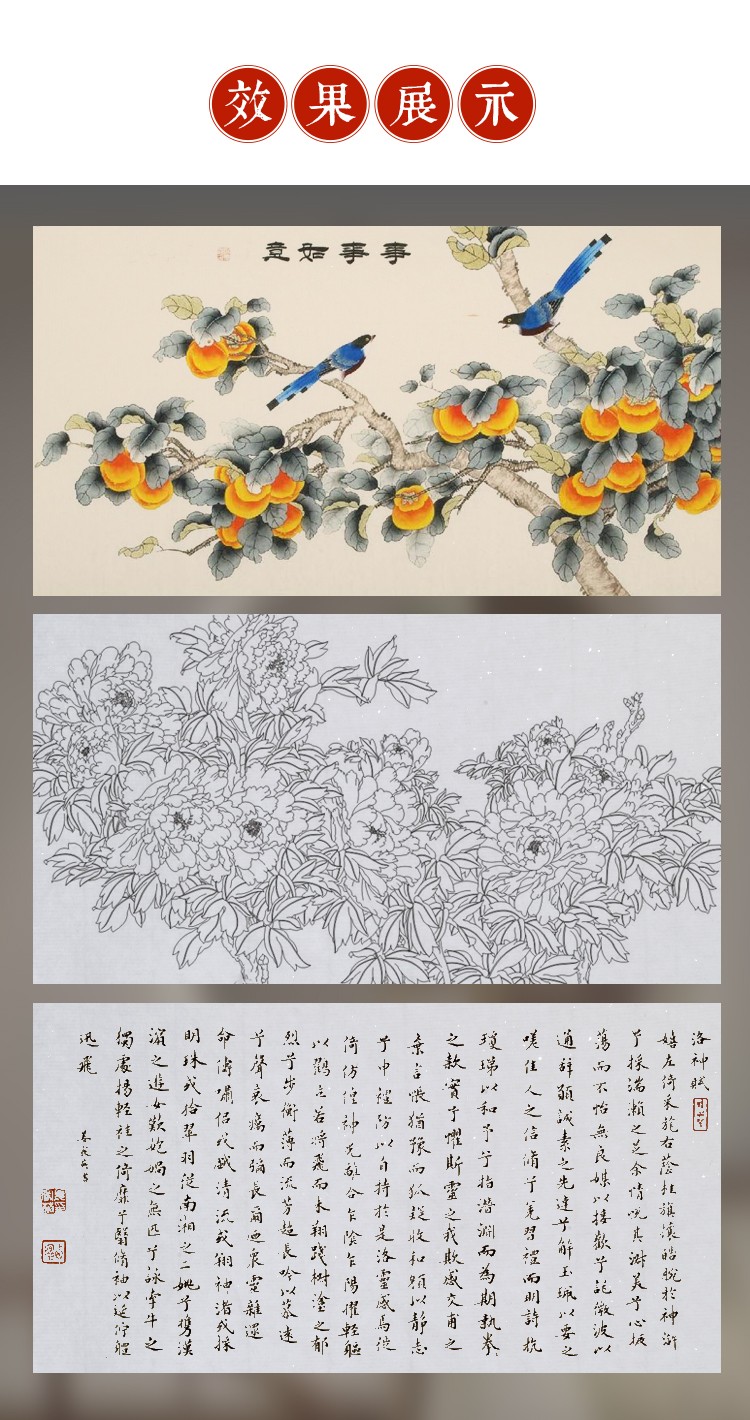 效果展示
事事如意
洛神賦
嬉左倚采旄右蔭桂旗攘皓腕於神滸
兮採湍瀨之芝余情悅其淑美兮心振
蕩而不怡無良媒以接歡兮託微波以
通辭願誠素之先達兮解玉珮以要之
嗟佳人之信脩兮羌習禮而明詩抗
瓊珶以和予兮指潛淵而為期執拳々
之款實兮懼斯靈之我欺感交甫之
棄言悵猶豫而狐疑收和顏以靜志
兮申禮防以自持於是洛靈感焉徙
倚仿偟神光離合乍陰乍陽擢輕軀
以鶴立若將飛而未翔踐椒塗之郁
烈兮步衡薄而流芳超長吟以慕遠
兮聲哀厲而彌長爾迺衆靈雜遝
命儔嘯侶或戲清流或翔神渚或採
明珠或拾翠羽從南湘之二妣兮攜漢
濱之遊女歎匏媧之無匹兮詠牽牛之
獨處揚輕袿之倚靡兮翳脩袖以延佇體
迅飛